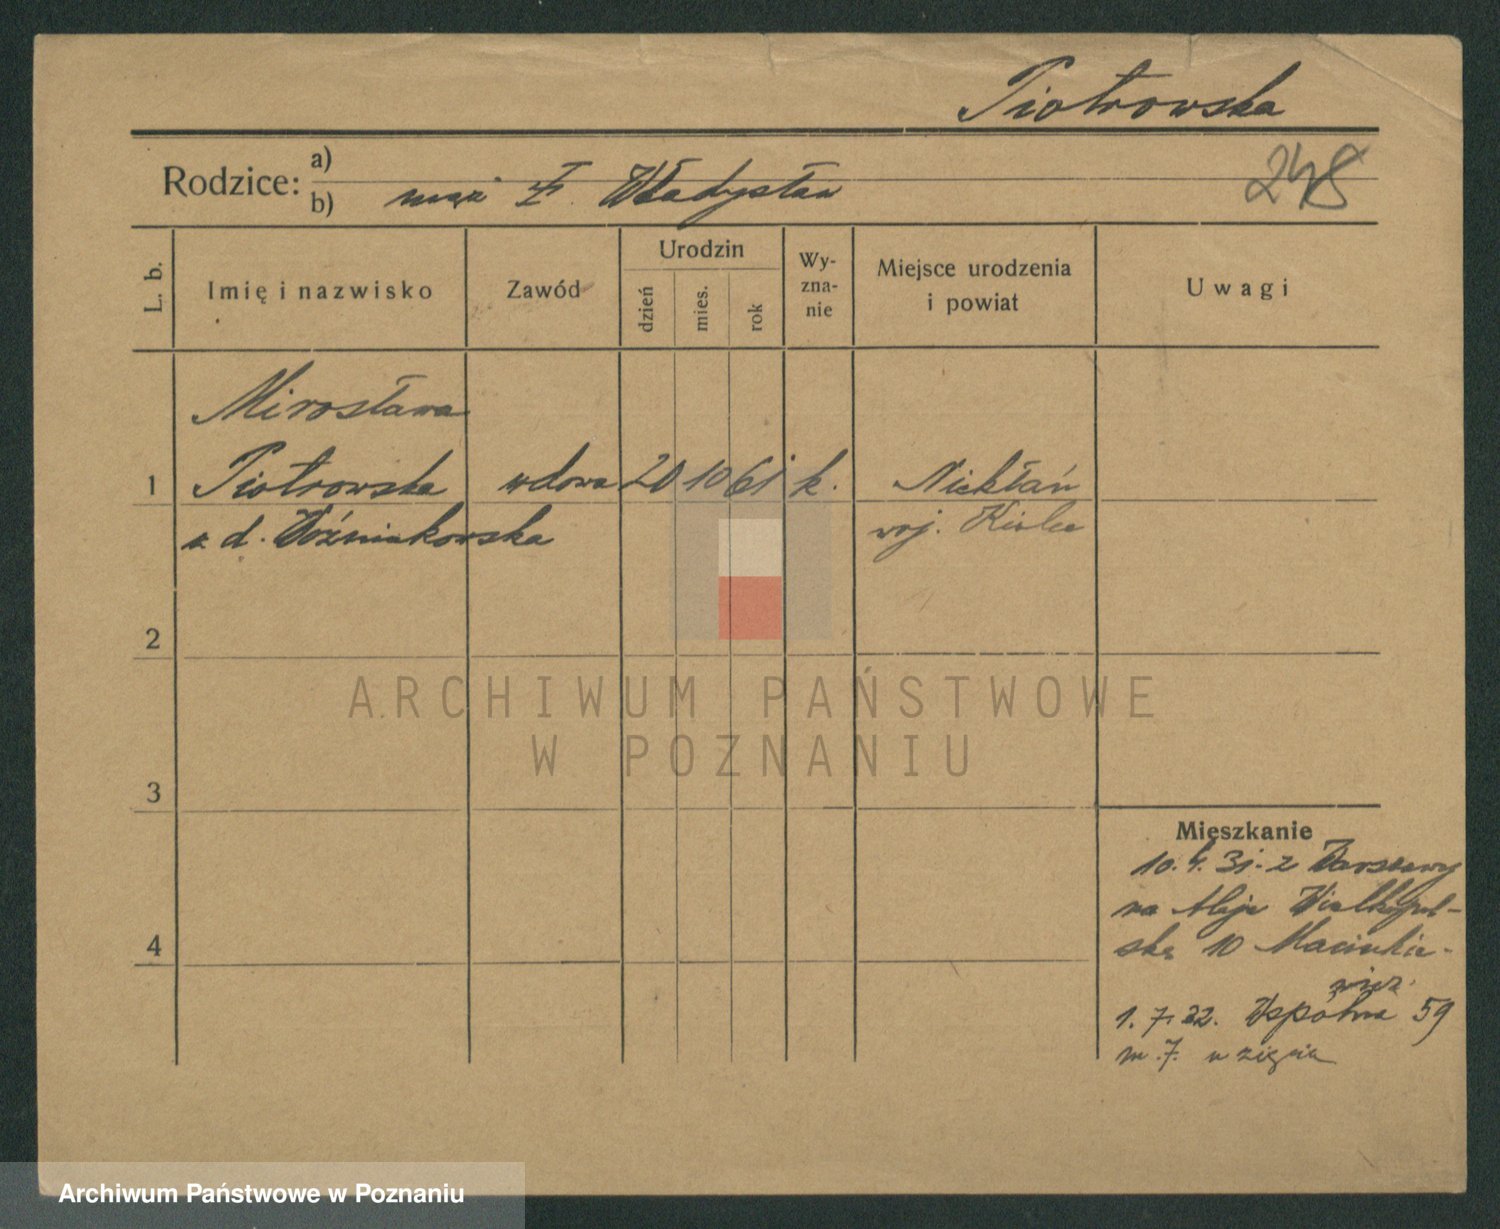 Piotrowska
Rodzice: a)
b) mąż ✝. Władysław
248
L. b.
Imię i nazwisko
Zawód
Urodzin
dzień
mies.
rok
Wy-
zna-
nie
Miejsce urodzenia
i powiat
Uwagi
Mirosława
1 Piotrowska wdowa 20 10 61 k. Niekłań
z d. Woźniakowska woj. Kielce
2
ARCHIWUM PAŃSTWOWE
W POZNANIU
3
Mieszkanie
10. 4. 31. z Warszawy
na Aleje Wielkopol-
skę 10 Macinkie-
wicz.
4
1. 7. 32. Wspólna 59
m. 7. u zięcia
Archiwum Państwowe w Poznaniu